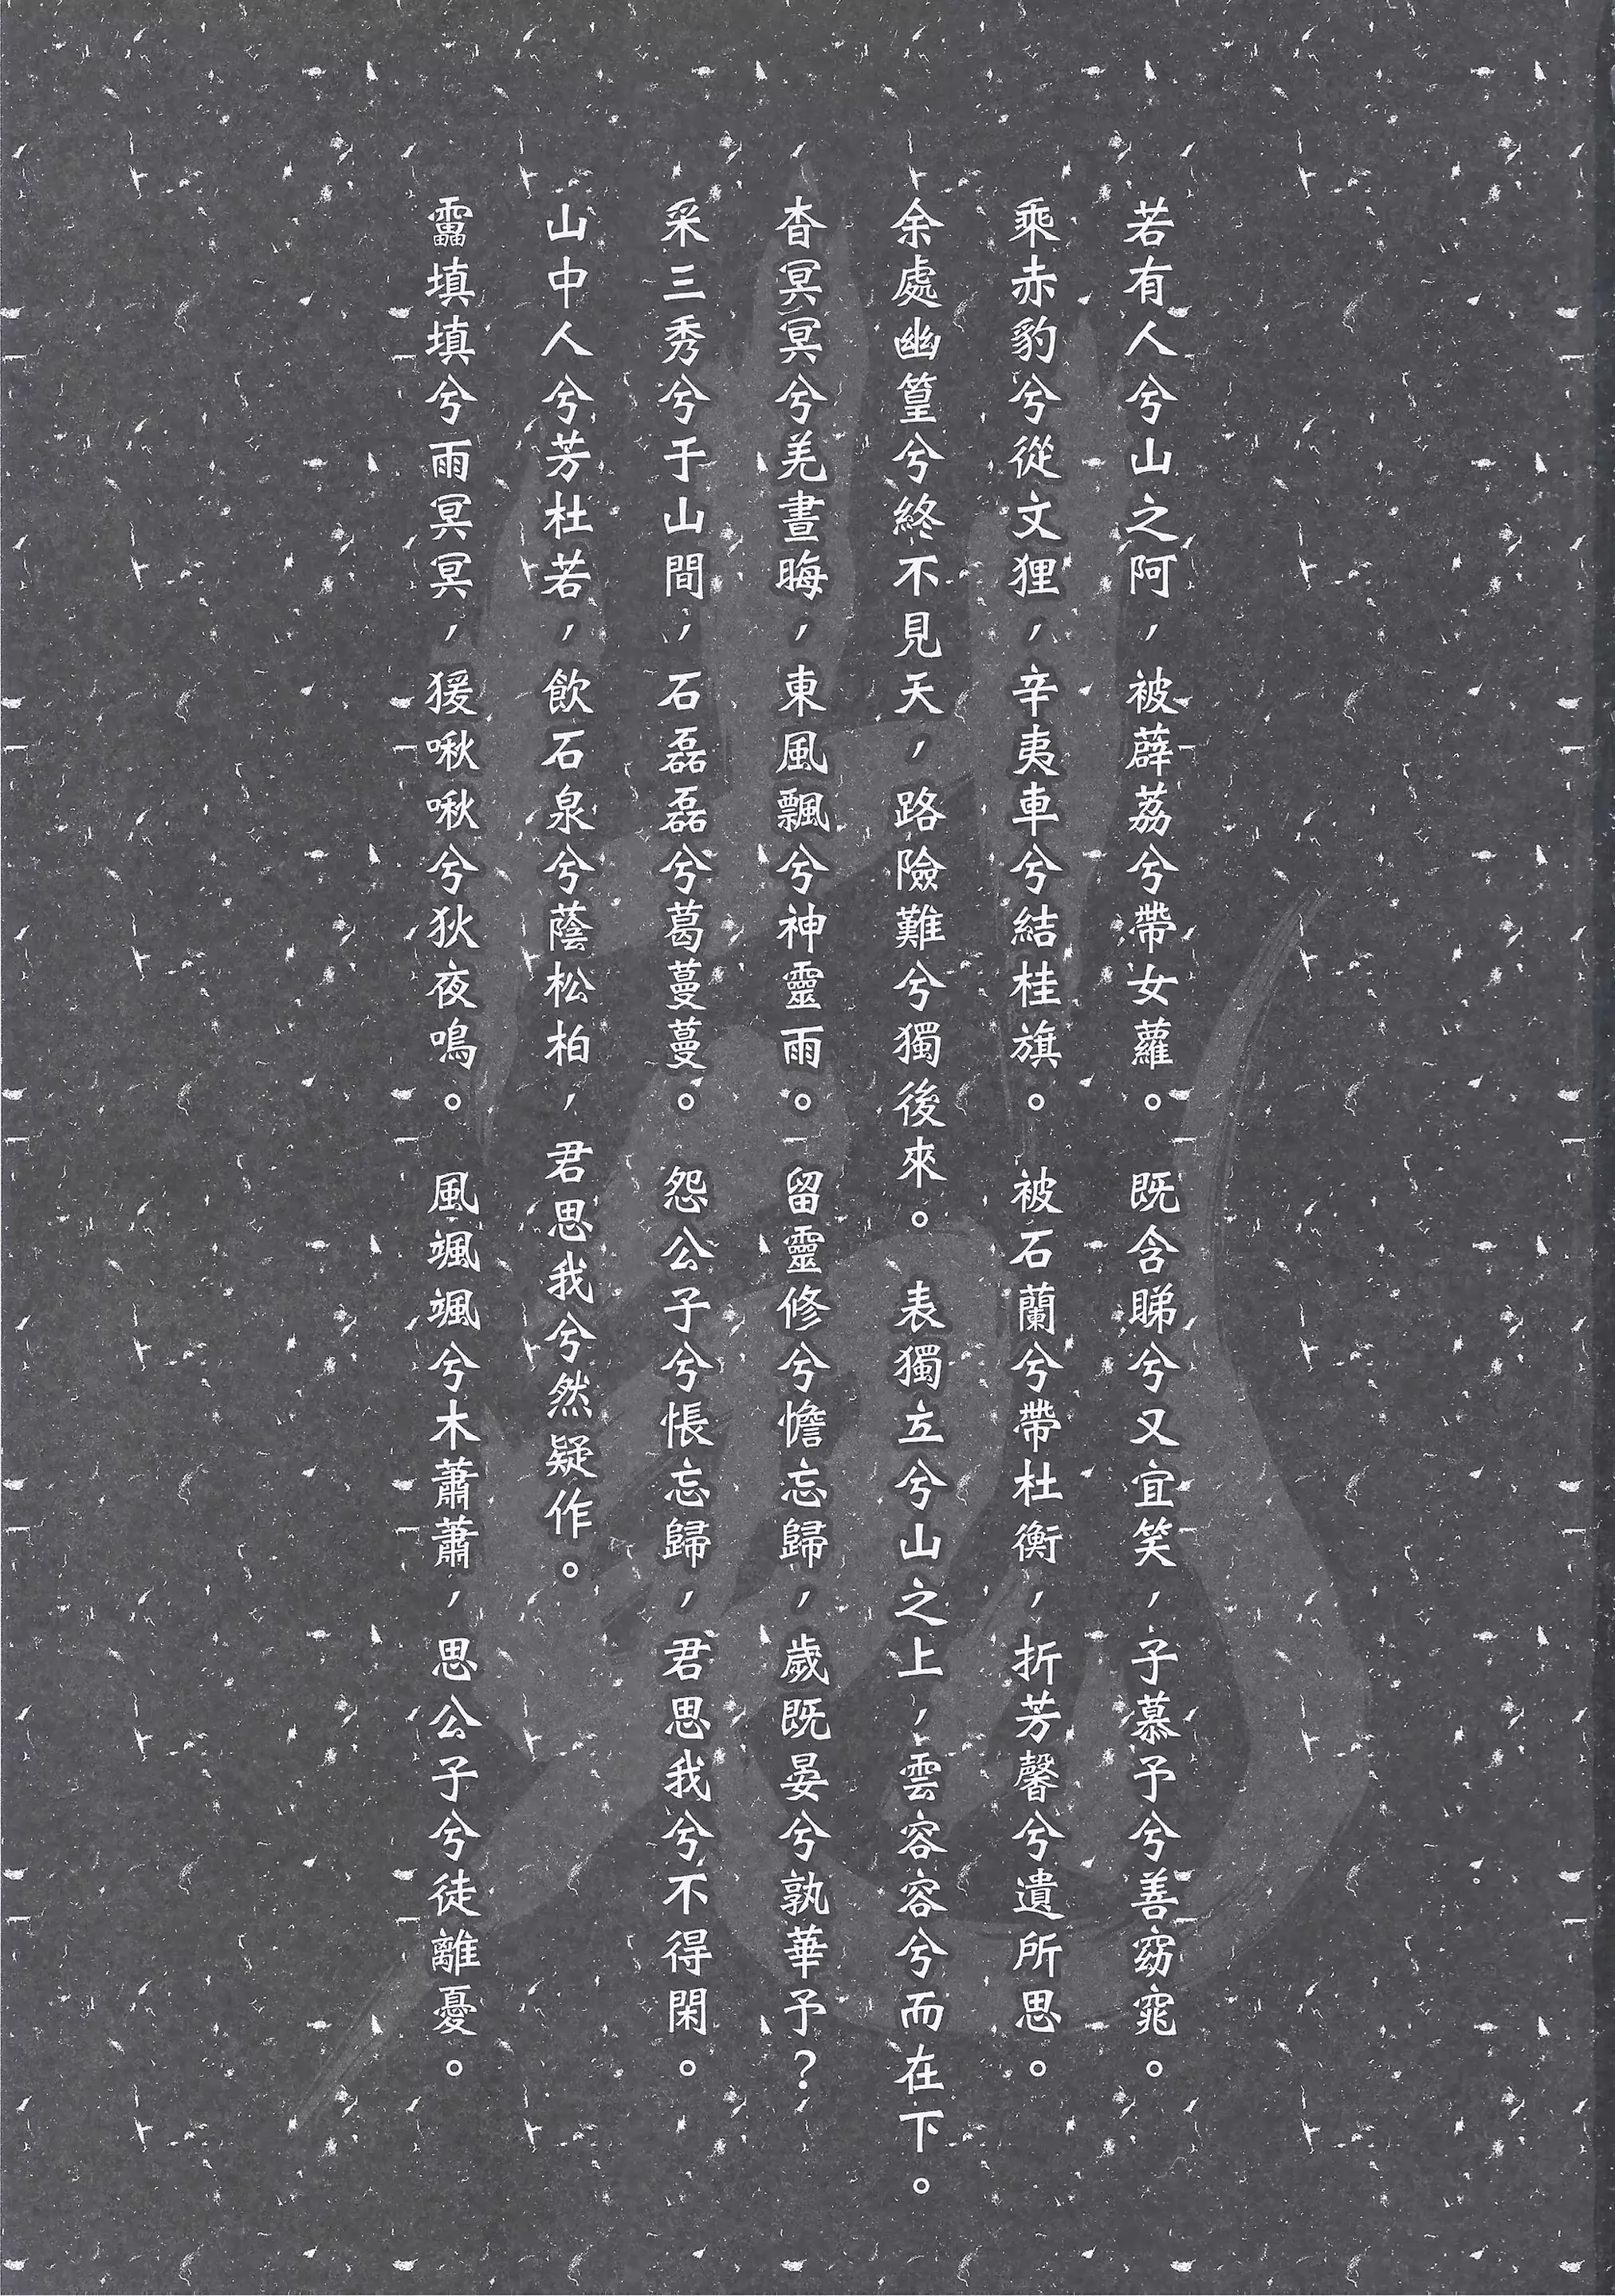 若有人兮山之阿，被薜荔兮帶女蘿。既含睇兮又宜笑，子慕予兮善窈窕。
乘赤豹兮從文狸，辛夷車兮結桂旗。被石蘭兮帶杜衡，折芳馨兮遺所思。
余處幽篁兮終不見天，路險難兮獨後來。表獨立兮山之上，雲容容兮而在下。
杳冥冥兮羌晝晦，東風飄兮神靈雨。留靈修兮憺忘歸，歲既晏兮孰華予？
采三秀兮于山間，石磊磊兮葛蔓蔓。怨公子兮悵忘歸，君思我兮不得閑。
山中人兮芳杜若，飲石泉兮蔭松柏，君思我兮然疑作。
靁填填兮雨冥冥，猨啾啾兮狖夜鳴。風颯颯兮木蕭蕭，思公子兮徒離憂。